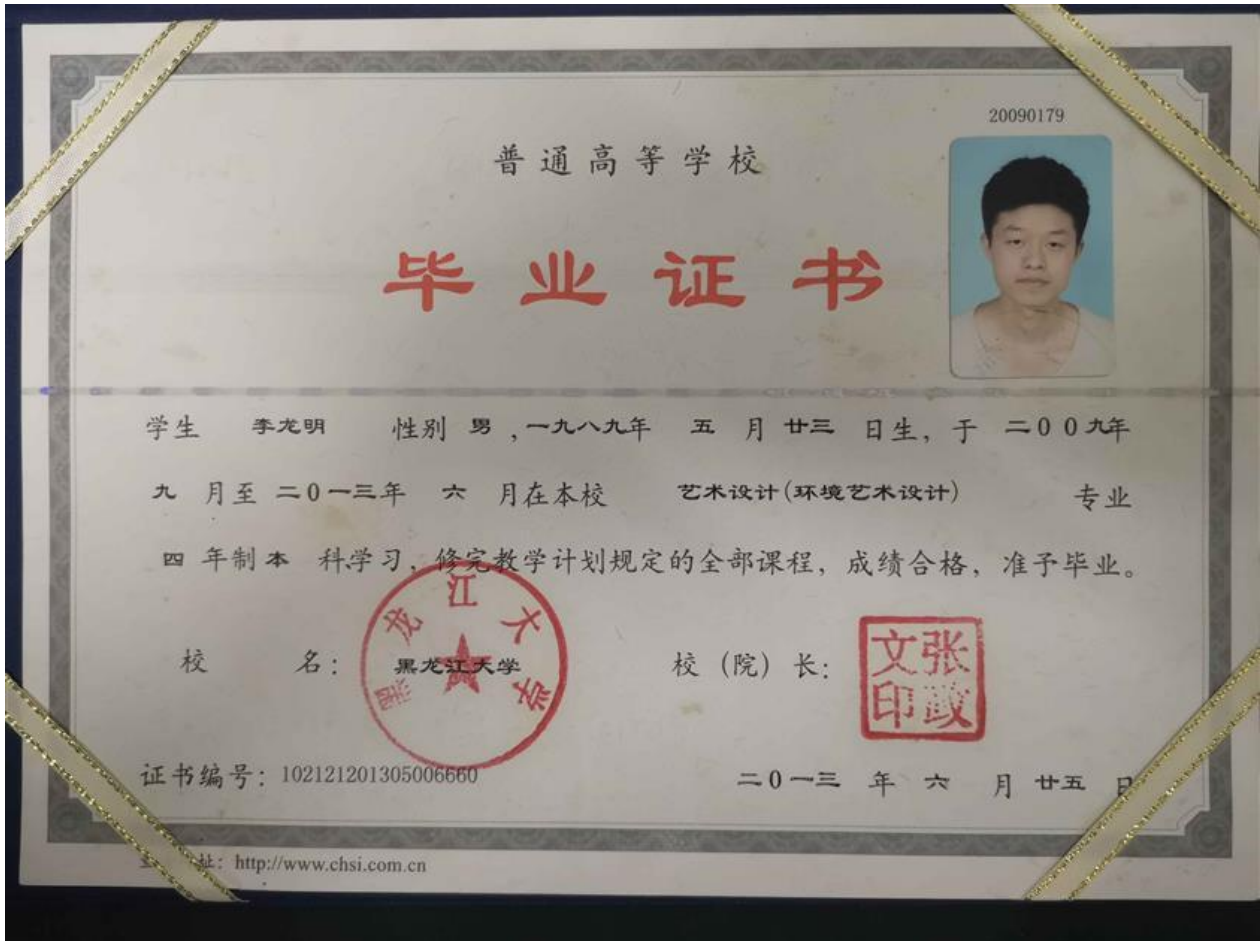 20090179
普通高等学校
毕业证书
学生 李龙明 性别 男 ,一九八九年 五 月 廿三 日生, 于 二00九年
九 月至 二0一三年 六 月在本校 艺术设计(环境艺术设计) 专业
四 年制 本 科学习, 修完教学计划规定的全部课程, 成绩合格, 准予毕业。
黑龙江大学
校 名: 黑龙江大学 校 (院) 长:
张政
文印
证书编号: 102121201305006660 二0一三 年 六 月 廿五 日
址: http://www.chsi.com.cn